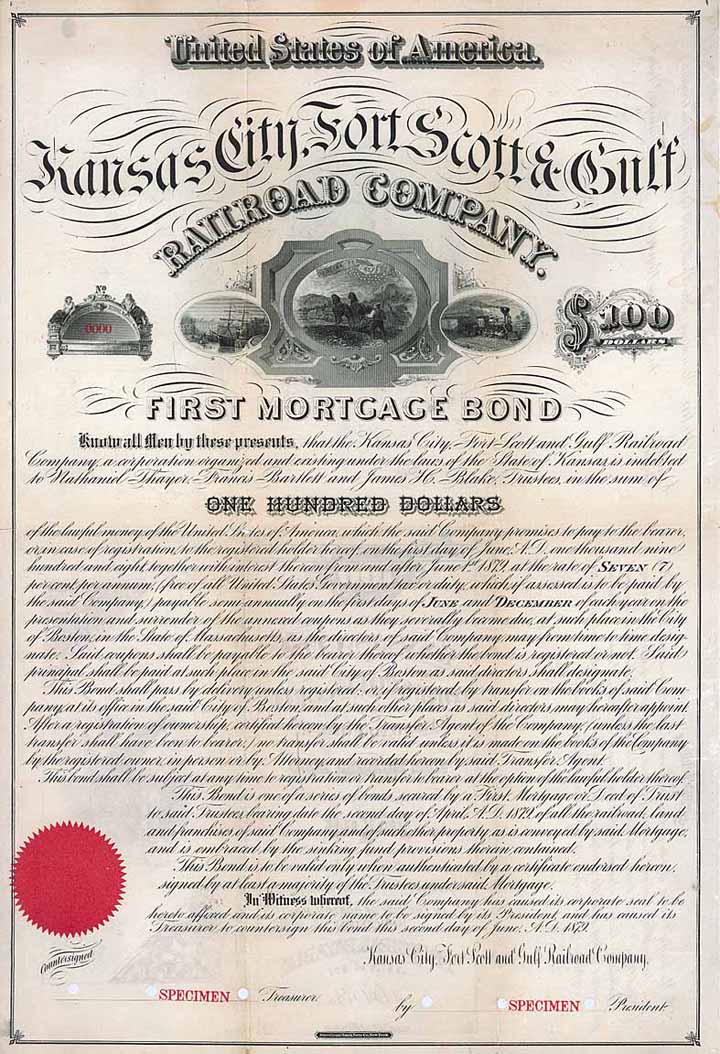 United States of America.
Kansas City, Fort Scott & Gulf
RAILROAD COMPANY.
0000
$100
DOLLARS
FIRST MORTGAGE BOND
Know all Men by these presents, that the Kansas City, Fort Scott and Gulf Railroad
Company, a corporation organized and existing under the laws of the State of Kansas is indebted
to Nathaniel Thayer, Francis Bartlett and James H. Blake, Trustees, in the sum of
ONE HUNDRED DOLLARS
of the lawful money of the United States of America, which the said Company promises to pay to the bearer,
or, in case of registration, to the registered holder hereof, on the first day of June, A.D. one thousand nine
hundred and eight, together with interest thereon from and after June 1st 1879, at the rate of SEVEN (7)
per cent. per annum, (free of all United States Government tax or duty, which, if assessed is to be paid by
the said Company,) payable semi-annually on the first days of JUNE and DECEMBER of each year on the
presentation and surrender of the annexed coupons as they severally become due, at such place in the City
of Boston, in the State of Massachusetts, as the directors of said Company may from time to time desig-
nate. Said coupons shall be payable to the bearer thereof whether the bond is registered or not. Said
principal shall be paid at such place in the said City of Boston as said directors shall designate.
This Bond shall pass by delivery unless registered: or if registered, by transfer on the books of said Com-
pany, at its office in the said City of Boston, and at such other places as said directors may hereafter appoint.
After a registration of ownership, certified hereon by the Transfer Agent of the Company, (unless the last
transfer shall have been to bearer,) no transfer shall be valid unless it is made on the books of the Company
by the registered owner, in person or by Attorney, and recorded hereon by said Transfer Agent.
This bond shall be subject at any time to registration or transfer to bearer at the option of the lawful holder thereof.
This Bond is one of a series of bonds secured by a First Mortgage or Deed of Trust
to said Trustees, bearing date the second day of April, A.D. 1879, of all the railroad, land
and franchises of said Company and of such other property as is conveyed by said Mortgage,
and is embraced by the sinking fund provisions therein contained.
This Bond is to be valid only when authenticated by a certificate endorsed hereon,
signed by at least a majority of the Trustees under said Mortgage.
In Witness whereof, the said Company has caused its corporate seal to be
hereto affixed and its corporate name to be signed by its President, and has caused its
Treasurer to countersign this bond this second day of June, A.D. 1879.
Kansas City, Fort Scott and Gulf Railroad Company,
Countersigned
SPECIMEN Treasurer.
by SPECIMEN President.